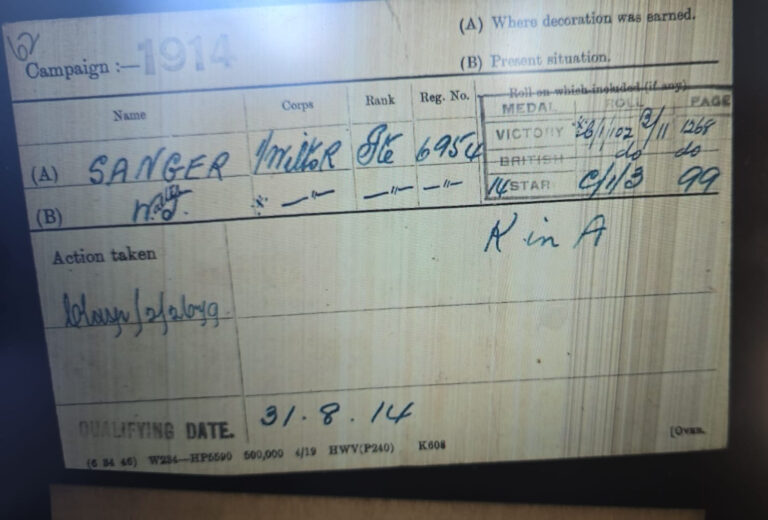 62
(A) Where decoration was earned.
Campaign :— 1914
(B) Present situation.
Name Corps Rank Reg. No. Roll on which included (if any)
MEDAL ROLL PAGE
(A) SANGER 1/Wilts R Pte 6954
VICTORY 2/11 1268
BRITISH do do
(B) -"- -"- -"-
14 STAR C/1/3 99
K in A
Action taken
Clasp
QUALIFYING DATE. 31.8.14
(6 34 46) W234—HP5590 500,000 4/19 HWV(P240) K608
[Over.